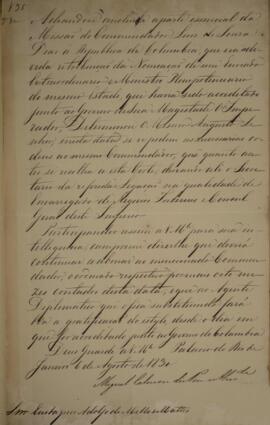 Achandose concluida a parte essencial da
Missão do Commendador Luis de Souza
Dias á Republica de Columbia, que era
de hum Enviado
Extraordinario e Ministro Plenipotenciario
do mesmo Estado, que acreditado
junto ao Governo de Sua Magestade O Impe-
rador, Determinou O Mesmo Augusto Se-
nhor, nesta data se expedissem as necessarias or-
dens ao mesmo Commendador, para quanto an-
tes se recolha a esta Corte, deixando o Secre-
tario da referida Legação na qualidade de
Encarregado de Negocios Interino e Consul
Geral deste Imperio.
Participando assim a V. Mce para sua in-
telligencia, cumpre-me dizer-lhe que deverá
continuar a abonar ao mencionado Commen-
dador, o ordenado respectivo por mais oito me-
zes contados desta data, e que ao Agente
Diplomatico que o fica substituindo fará
a gratificação do estylo desde o dia em
que for acreditado junto ao Governo de Columbia
Deos Guarde a V. Mce Palacio do Rio de
Janeiro 6 de Agosto de 1830
Miguel Calmon du Pin e Almeida
Snr Eustaquio Adolfo de Mello Mattos